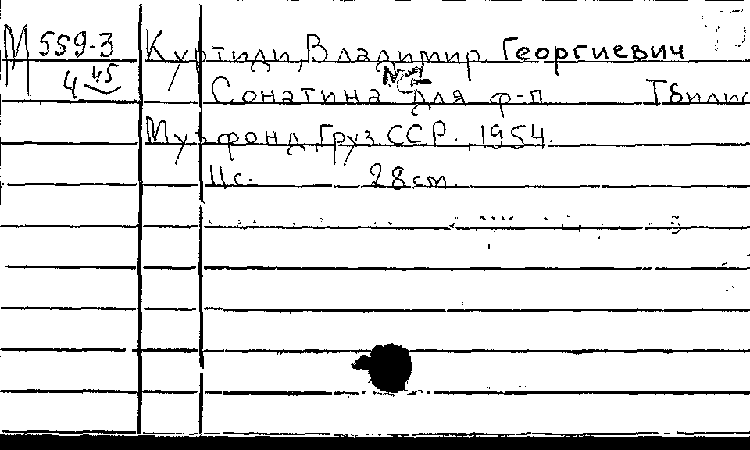 М 559-3 Куртиди, Владимир Георгиевич
4 45
Сонатина для ф-п Тбилис
Музфонд Груз ССР. 1954.
11с. 28cm.